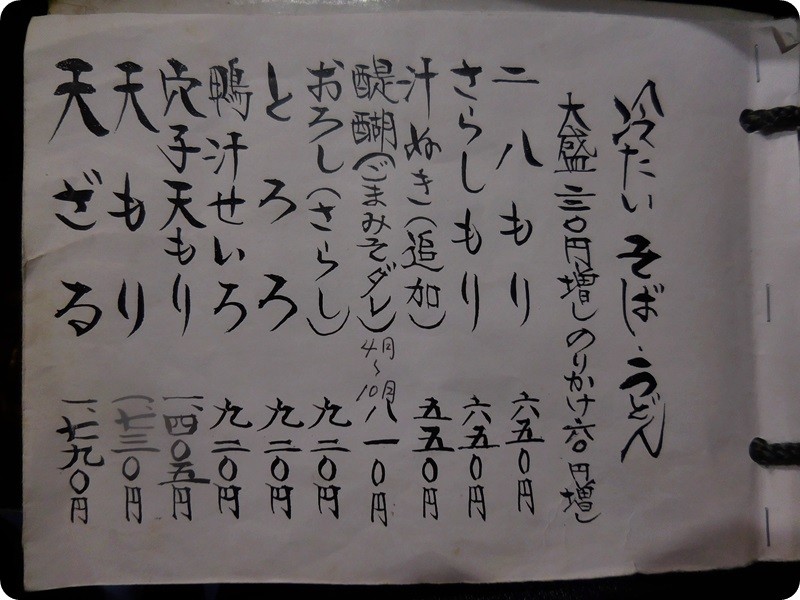 冷たい そば・うどん
大盛二三〇円増し のりかけ六〇円増し
二八もり 六五〇円
さらしもり 六五〇円
汁ぬき(追加) 五五〇円
醍醐(ごまみそダレ) 4月〜10月 八一〇円
おろし(さらし) 九二〇円
とろろ 九二〇円
鴨汁せいろ 九二〇円
穴子天もり 一、四〇五円
天もり 一、七三〇円
天ざる 一、七九〇円